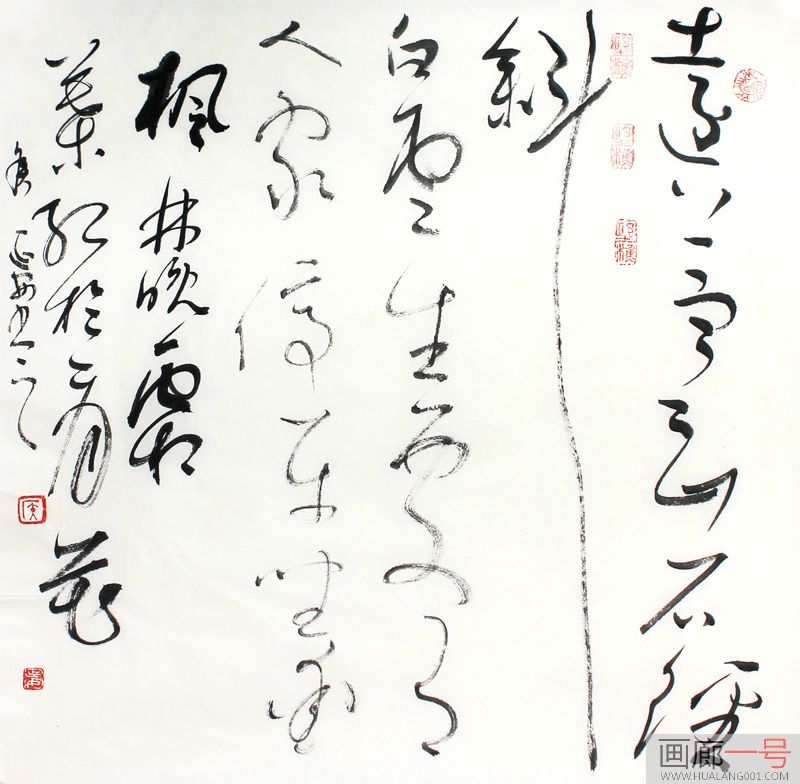 遠上寒山石徑
斜
白雲生處有
人家停車坐愛
楓林晚霜
葉紅於二月花
画廊一号
WWW.HUALANG001.COM